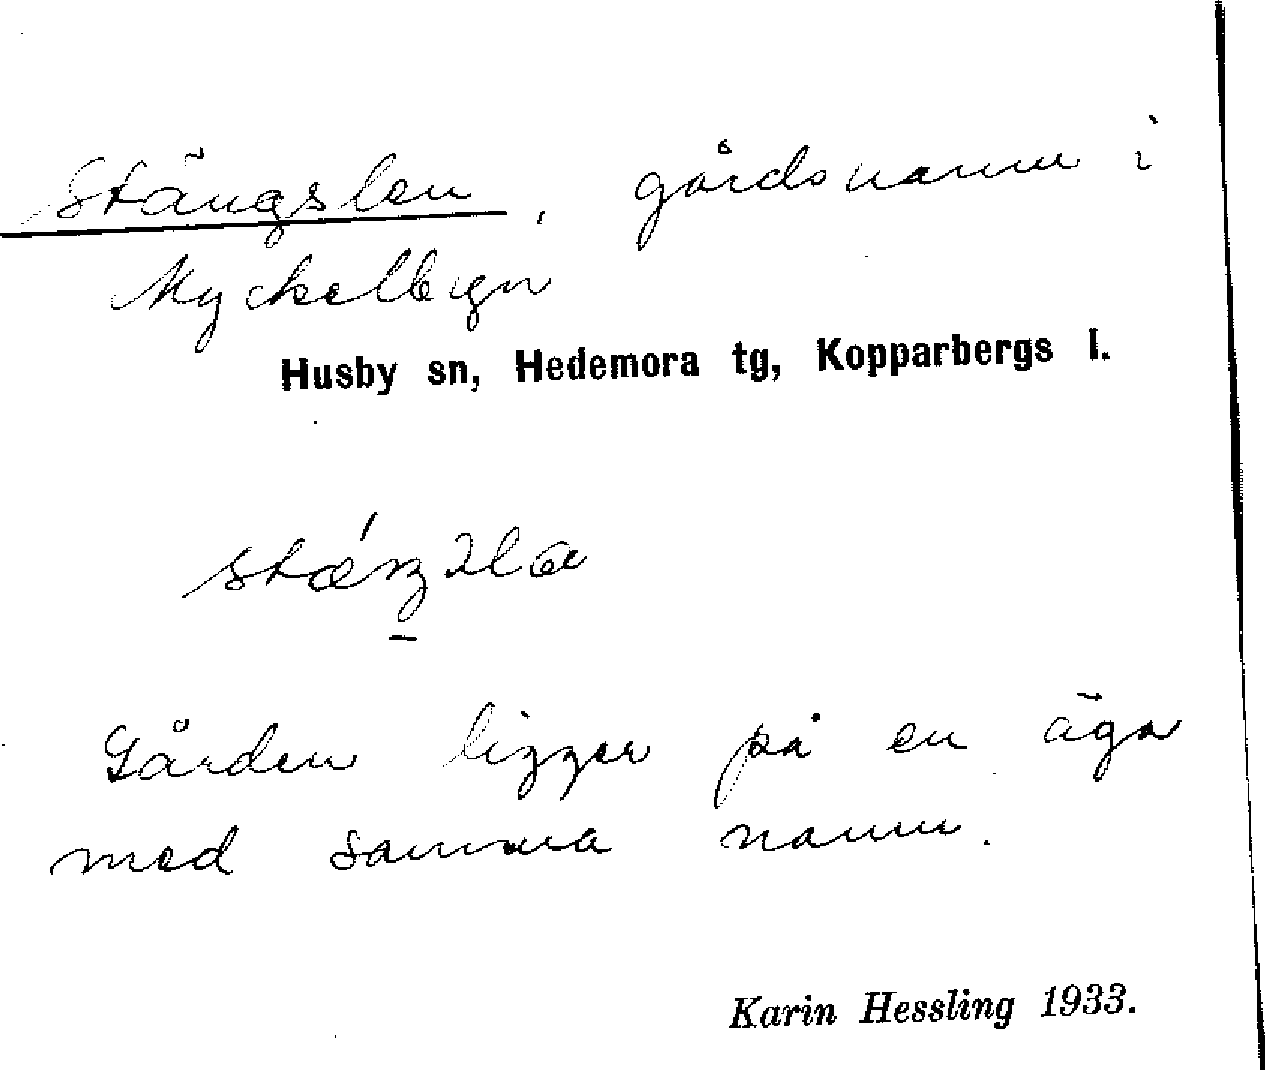 Stängslen, gårdsnamn i
Myckelbyn
Husby sn, Hedemora tg, Kopparbergs l.
Gården ligger på en äga
med samma namn.
Karin Hessling 1933.